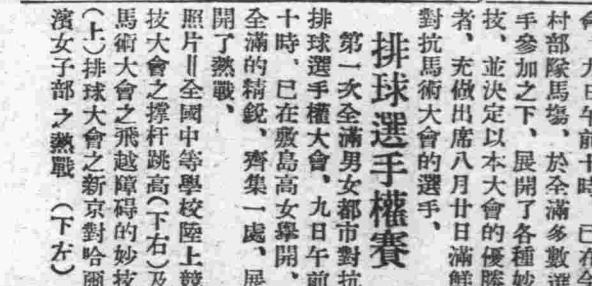 會、九日午前十時、已在今
村部隊馬塲、於全滿多數選
手參加之下、展開了各種妙
技、並決定以本大會的優勝
者、充做出席八月廿日滿鮮
對抗馬術大會的選手、
排球選手權賽
第一次全滿男女都市對抗
排球選手權大會、九日午前
十時、已在敷島高女舉開、
全滿的精銳、齊集一處、展
開了熱戰、
照片＝全國中等學校陸上競
技大會之撑杆跳高(下右)及
馬術大會之飛越障碍的妙技
(上)排球大會之新京對哈爾
濱女子部之熱戰 (下左)